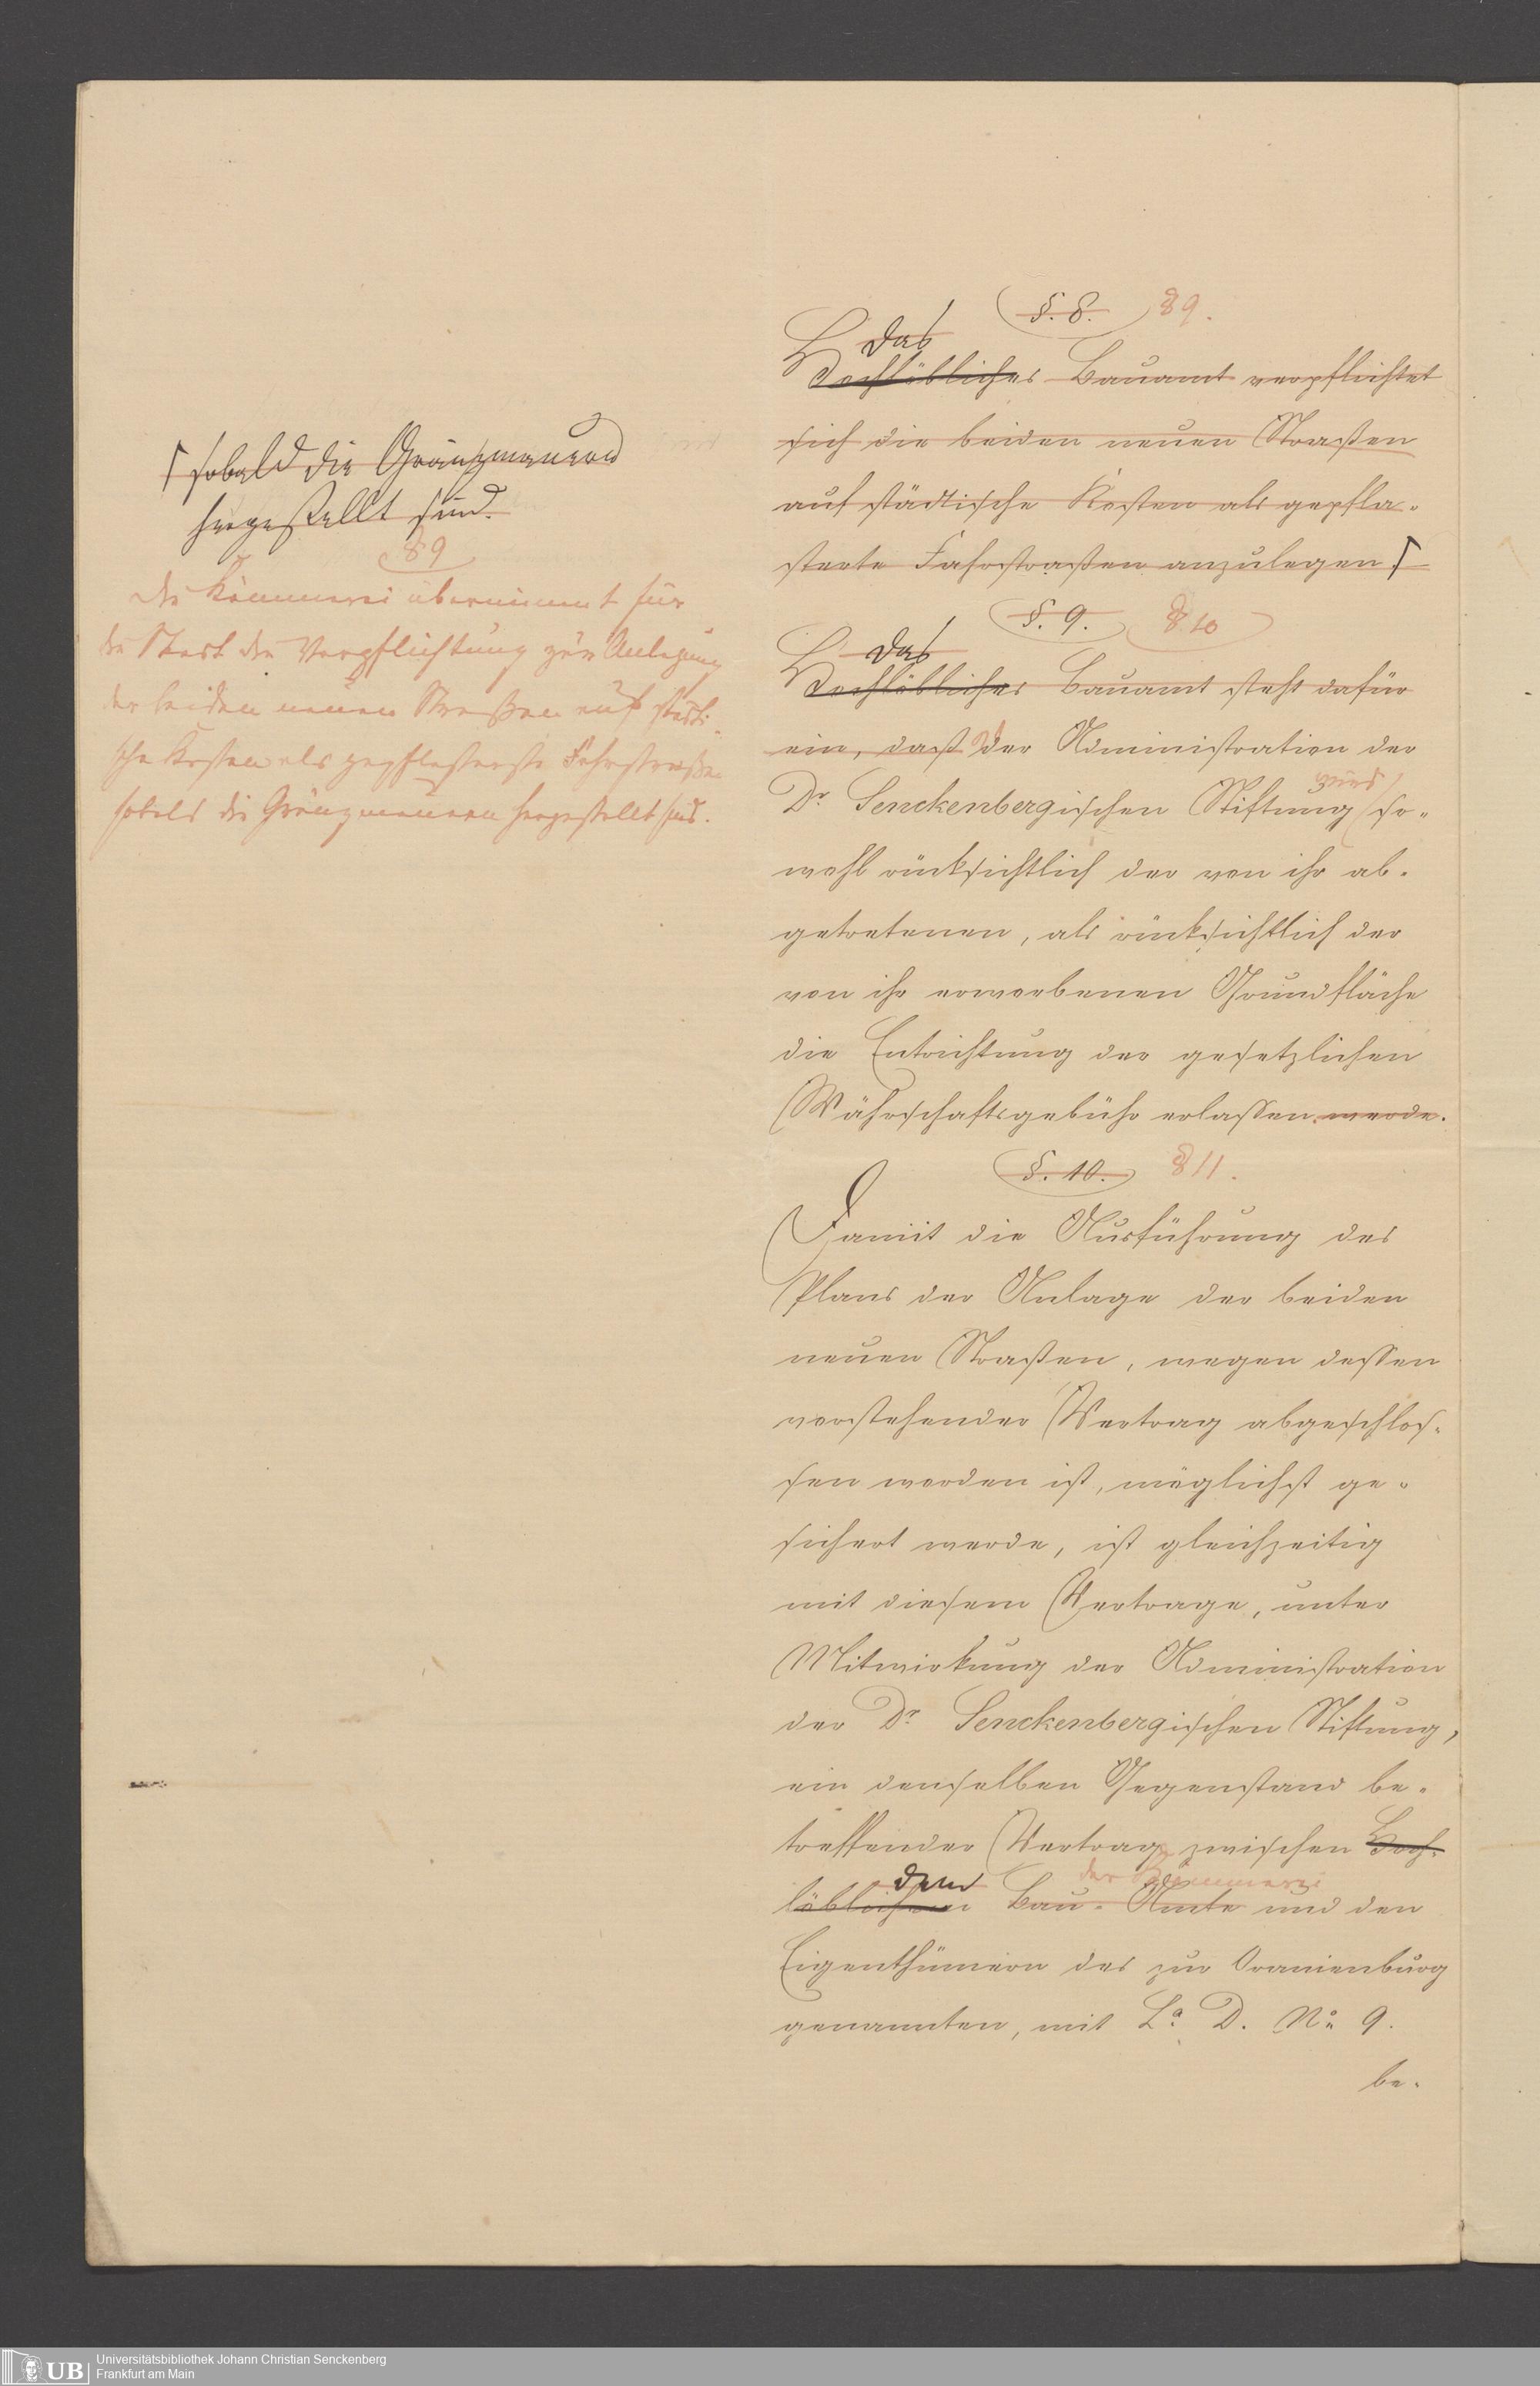 ſobald die Gränzmauern
hergeſtellt ſind.
§ 9
Die Kämmerei übernimmt für
die Stadt die Verpflichtung zur Anlegung
der beiden neuen Straßen auf ſtädti-
ſche Koſten als gepflaſterte Fahrſtraßen
ſobald die Gränzmauern hergeſtellt ſind.
§. 8. § 9.
Das
Hochlöbliches Bauamt verpflichtet
ſich die beiden neuen Straßen
auf ſtädtiſche Koſten als gepfla-
ſterte Fahrſtraßen anzulegen
§. 9. § 10
Das
Hochlöbliches Bauamt ſteht dafür
ein, daß der Adminiſtration der
wird
Dr. Senckenbergiſchen Stiftung ſo-
wohl rückſichtlich der von ihr ab-
getretenen, als rückſichtlich der
von ihr erworbenen Grundfläche
die Entrichtung der geſetzlichen
Währſchaftsgebühr erlaſſen werde.
§. 10. § 11.
Damit die Ausführung des
Plans der Anlage der beiden
neuen Straßen, wegen deſſen
vorſtehender Vertrag abgeſchloſ-
ſen worden iſt, möglichſt ge-
ſichert werde, iſt gleichzeitig
mit dieſem Vertrage, unter
Mitwirkung der Adminiſtration
der Dr. Senckenbergiſchen Stiftung,
ein denſelben Gegenſtand be-
treffender Vertrag zwiſchen Hoch-
dem der Kämmerei
löblichem Bau-Amte und den
Eigenthümern des zur Oranienburg
genannten, mit La. D. No. 9.
be-
Universitätsbibliothek Johann Christian Senckenberg
Frankfurt am Main
UB